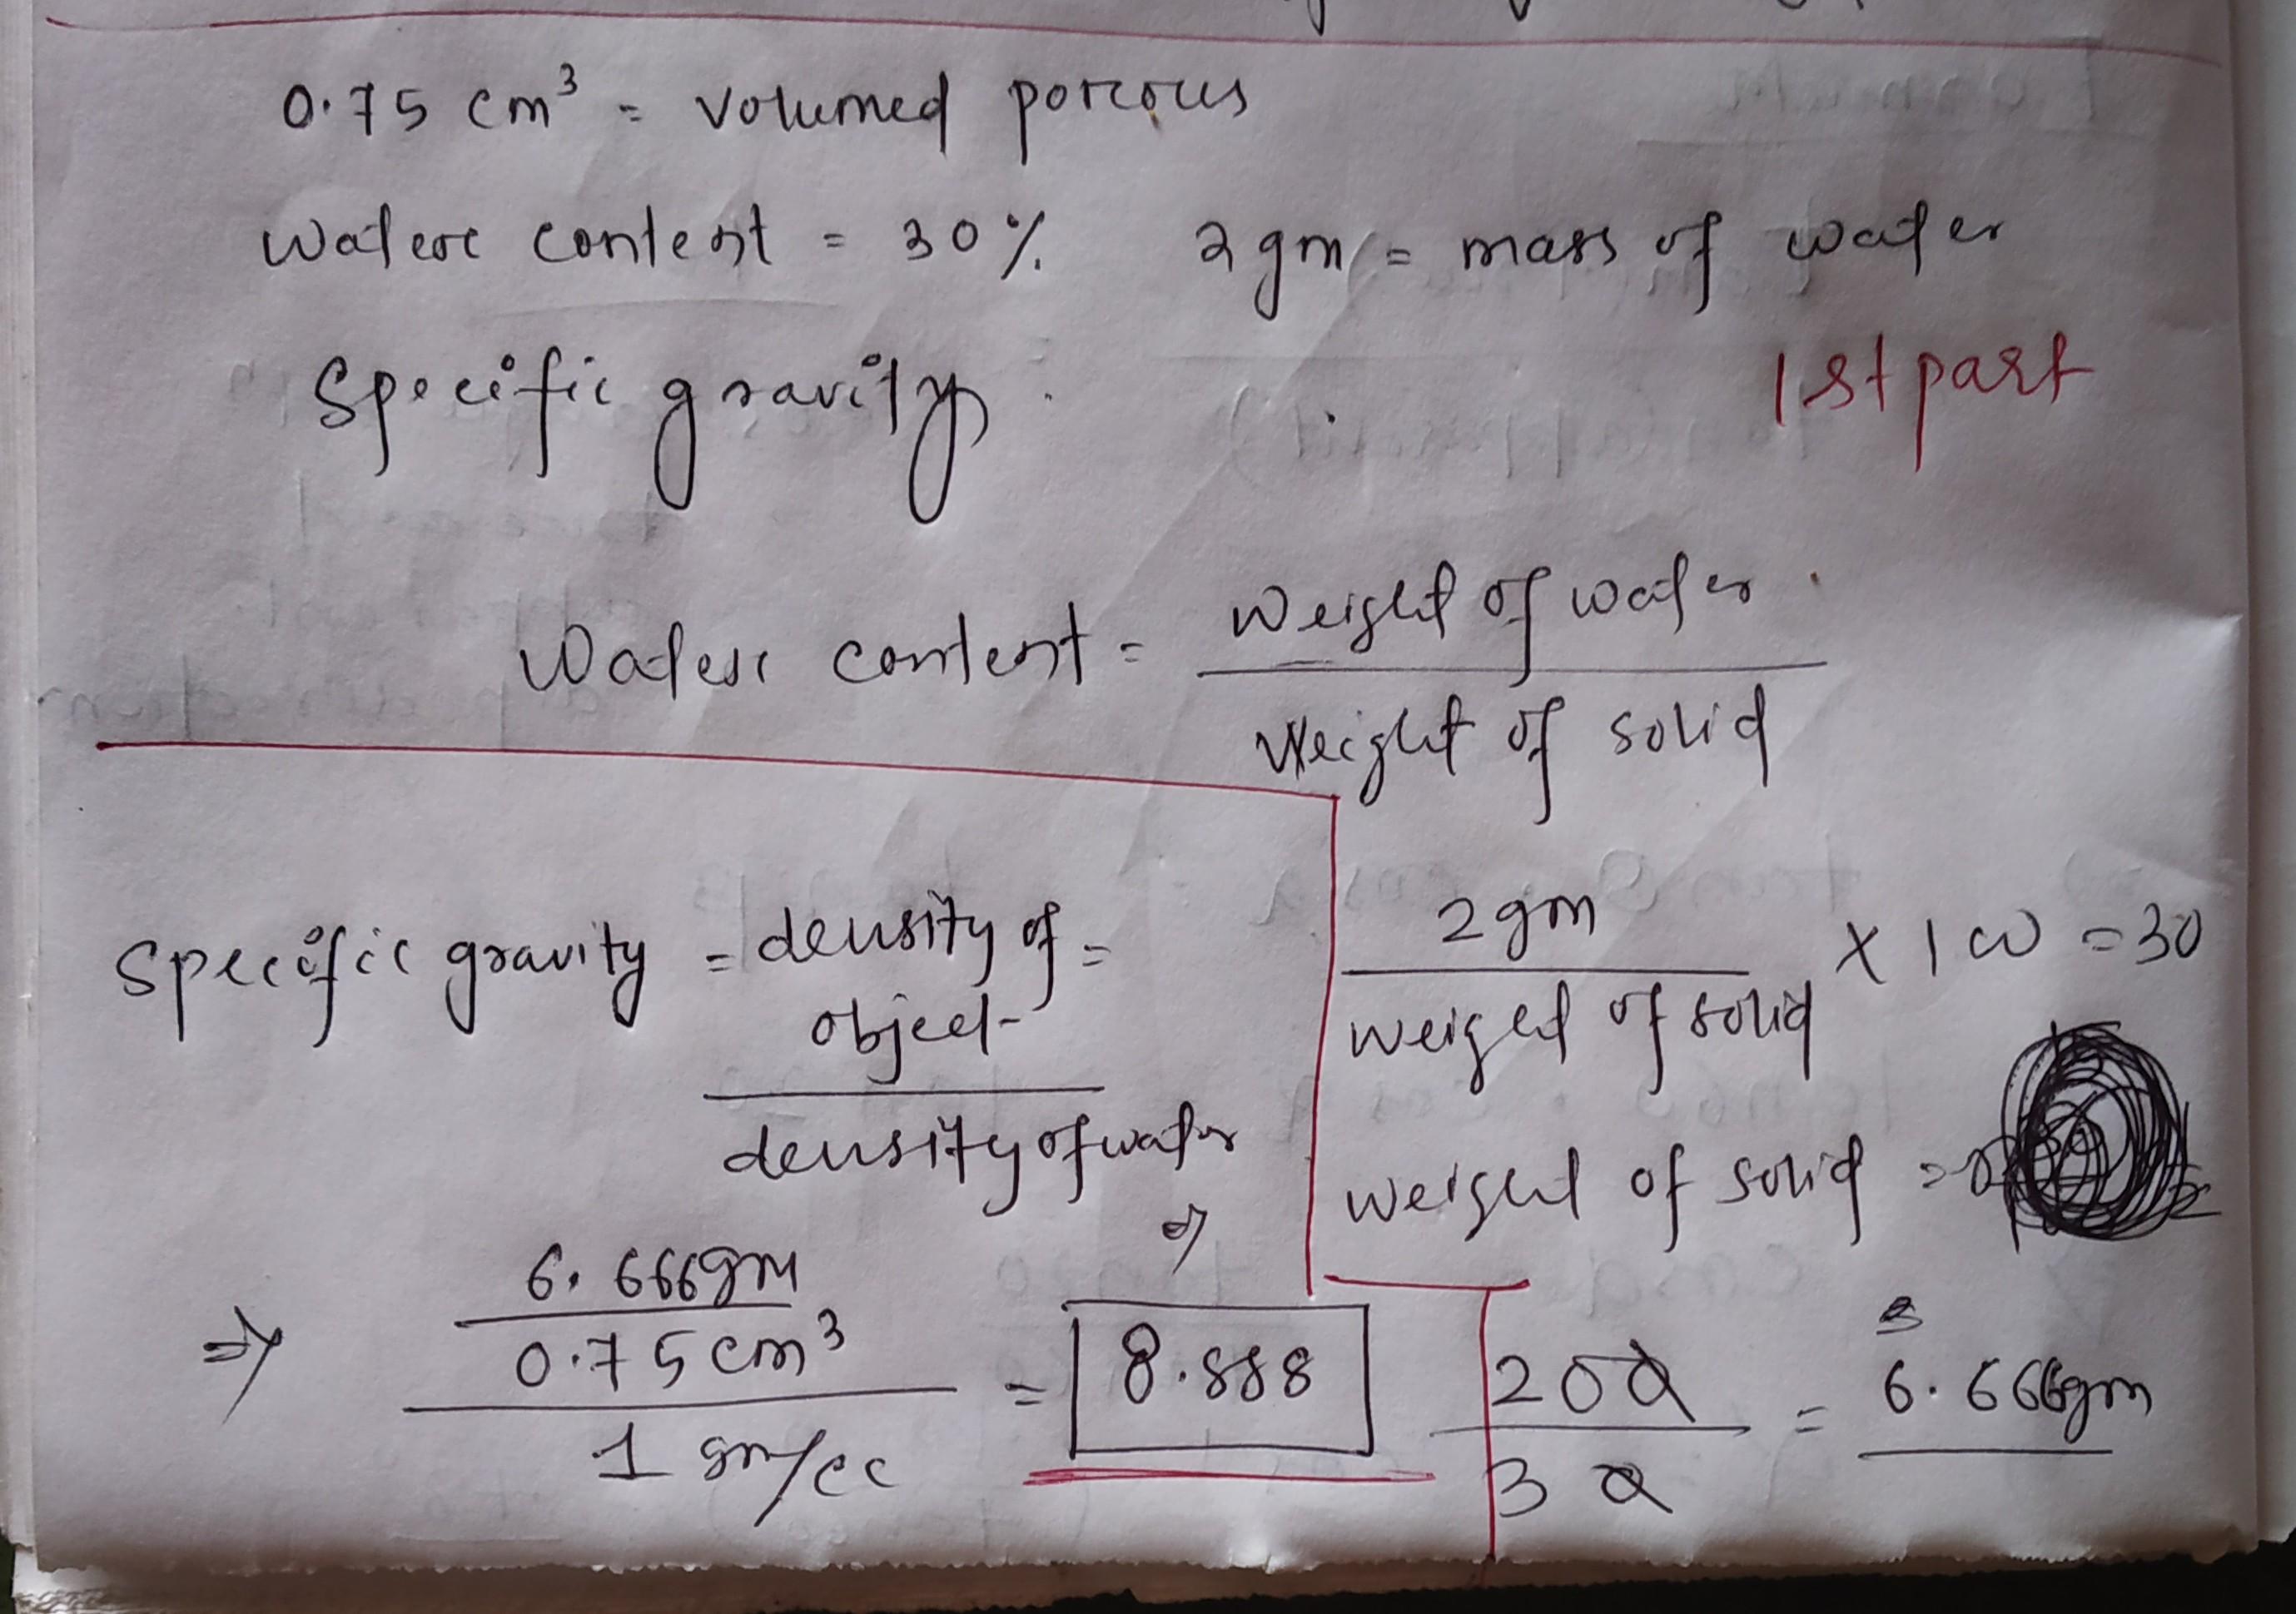 0.75 cm³ = volumed porous
Water content = 30% 2gm = mass of water
Specific gravity
1st part
Water content = Weight of water
Weight of solid
Specific gravity = density of =
object
density of water
2gm
weight of solid × 100 = 30
weight of solid =
⇒
⇒ 6.666gm
0.75 cm³
1 gm/cc
= 8.888
200
30
= 6.666gm